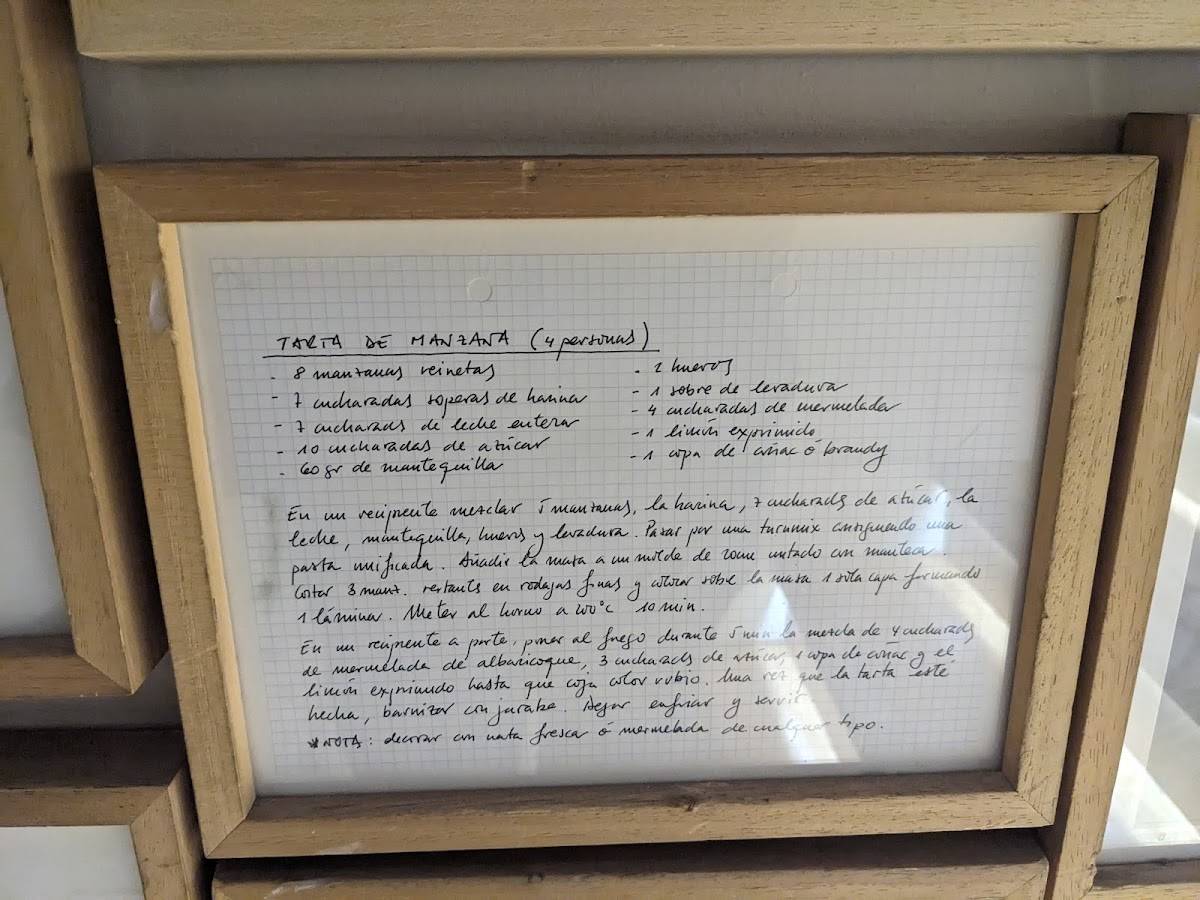 TARTA DE MANZANA (4 personas)
- 8 manzanas reinetas
- 7 cucharadas soperas de harina
- 7 cucharads de leche entera
- 10 cucharadas de azúcar
- 60 gr de mantequilla
- 2 huevos
- 1 sobre de levadura
- 4 cucharadas de mermelada
- 1 limón exprimido
- 1 copa de coñac ó brandy
En un recipiente mezclar 5 manzanas, la harina, 7 cucharads de azúcar, la
leche, mantequilla, huevos y levadura. Pasar por una turmix consiguiendo una
pasta unificada. Añadir la masa a un molde de 20cm untado con manteca.
Cortar 3 manz. restants en rodajas finas y colocar sobre la masa 1 sola capa formando
1 lámina. Meter al horno a 200°C 10 min.
En un recipiente a parte, poner al fuego durante 5 min la mezcla de 4 cucharads
de mermelada de albaricoque, 3 cucharads de azúcar, 1 copa de coñac y el
limón exprimido hasta que coja color rubio. Una vez que la tarta esté
hecha, barnizar con jarabe. Dejar enfriar y servir.
*NOTA: decorar con nata fresca ó mermelada de cualquier tipo.